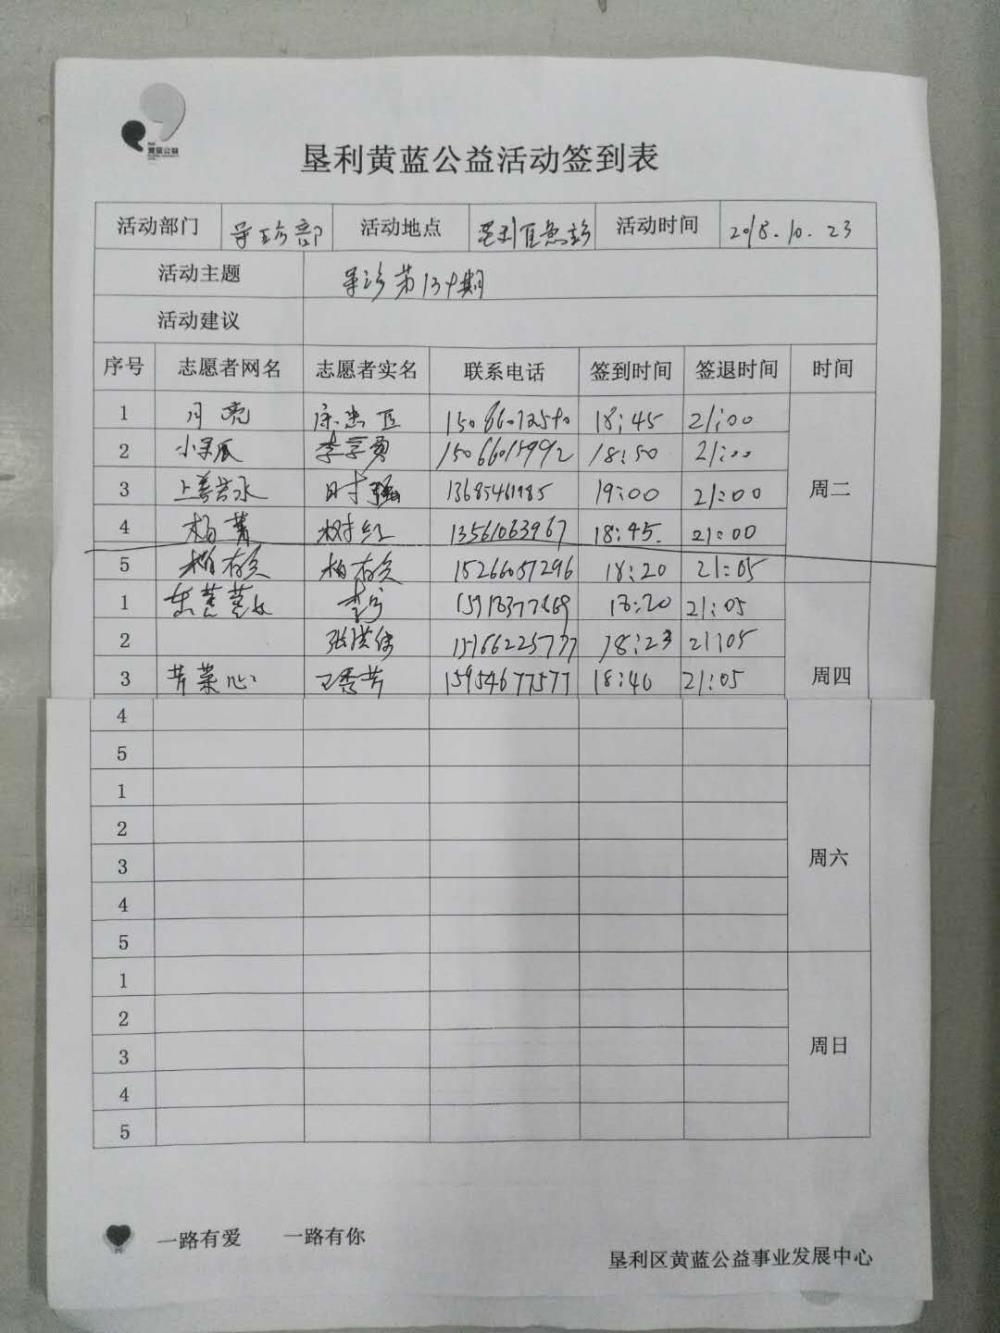 黄蓝公益
垦利黄蓝公益活动签到表
活动部门 导诊部 活动地点 垦利区 活动时间 2018.10.23
活动主题 导诊第134期
活动建议
序号 志愿者网名 志愿者实名 联系电话 签到时间 签退时间 时间
1 月亮 18:45 21:00
2 小呆瓜 李学勇 15066015992 18:50 21:00
3 上善若水 时强 19:00 21:00 周二
4 杨菁 树红 13561063967 18:45. 21:00
5 15266057296 18:20 21:05
1 18:20 21:05
2 张洪伟 15166225777 18:23 21:05
3 芹菜心 王秀芳 15954677577 18:40 21:05 周四
4
5
1
2
3 周六
4
5
1
2
3 周日
4
5
一路有爱 一路有你
垦利区黄蓝公益事业发展中心